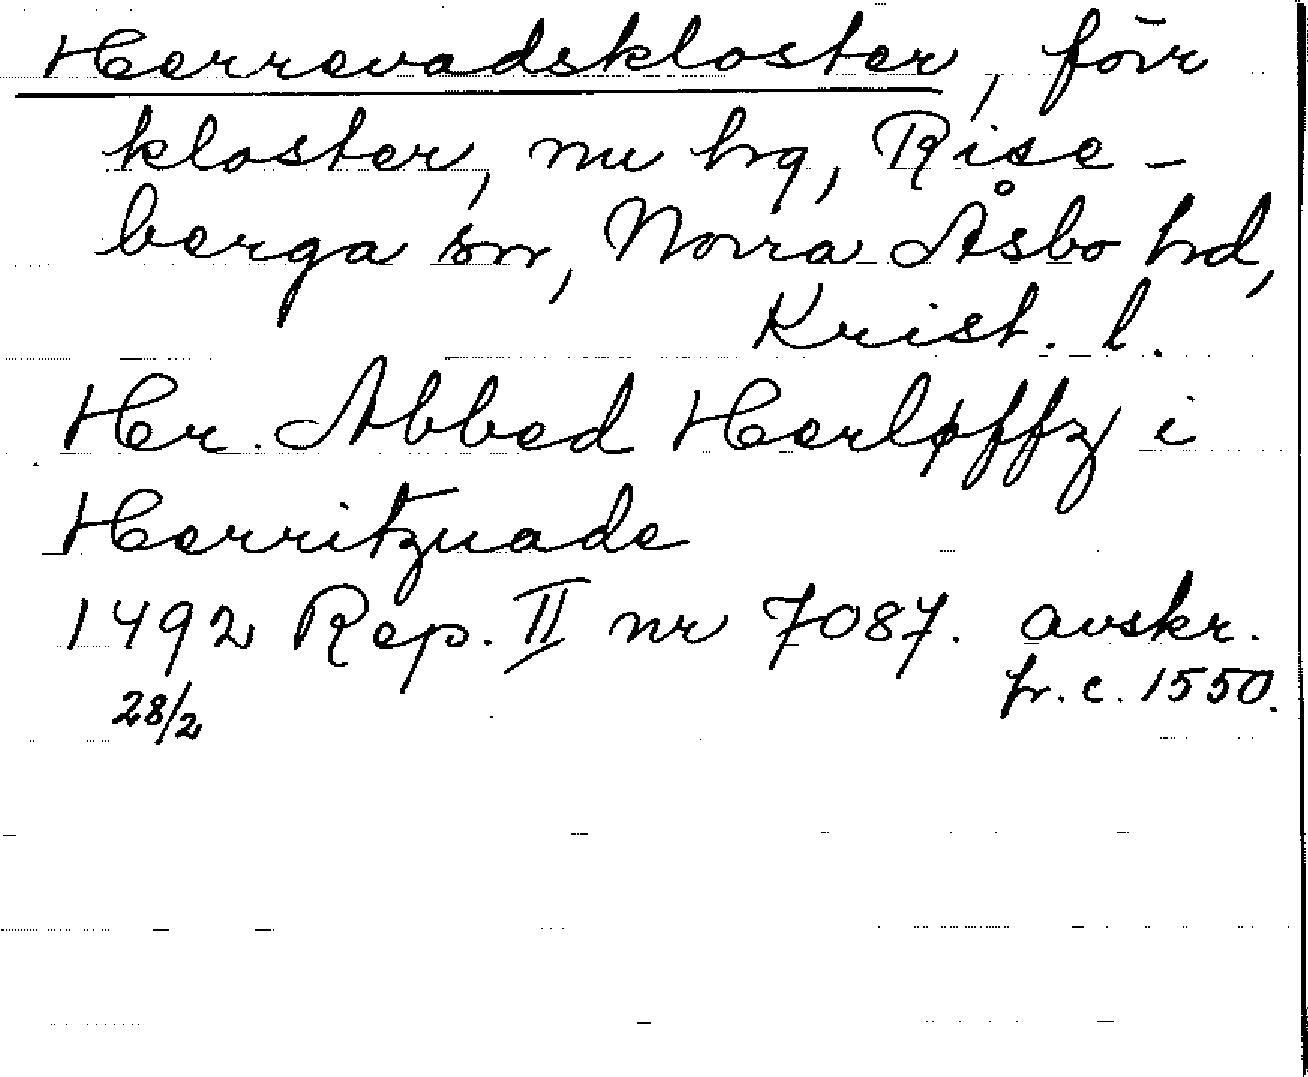 Herrevadskloster, förr
kloster, nu hg, Rise-
berga sn, Norra Åsbo hd,
Krist. l.
Her. Abbed Herløffz i
Herritzuade
1492 Rep. II nr 7087. avskr.
28/2 fr. c. 1550.